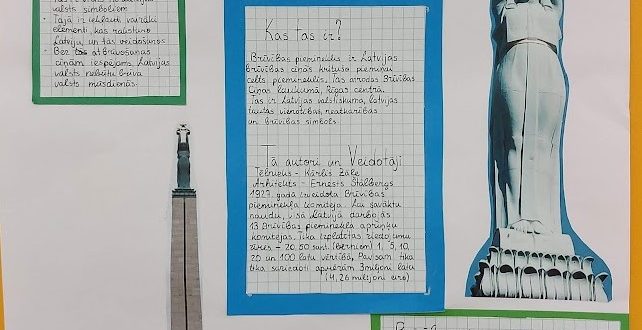 valsts simboliem.
- Tajā ir iekļauti vairāki
elementi, kas raksturo
Latviju un tās veidošanos.
Bez šo atbrīvošanas
cīņām iespējams Latvijas
valsts nebūtu brīva
valsts mūsdienās.
Kas tas ir?
Brīvības piemineklis ir Latvijas
brīvības cīņās kritušo piemiņai
celts piemineklis. Tas atrodas Brīvības
Cīņas laukumā, Rīgas centrā.
Tas ir Latvijas valstiskuma, latvijas
tautas vienotības, neatkarības
un brīvības simbols.
Tā autori un Veidotāji
Tēlnieks - Kārlis Zāle
Arhitekts - Ernests Štālbergs
1927. gadā izveidota Brīvības
pieminekļa komiteja. Lai savāktu
naudu, visā Latvijā darbojās
13 Brīvības pieminekļa apriņķu
komitejas. Tika izplatītas ziedojumu
zīmes - 20, 50 sant. (Bērniem) 1, 5, 10,
20 un 100 latu vērtībā. Pavisam tika
tika sarūpēti apmēram 3 miljoni latu
(4,26 miljoni eiro)